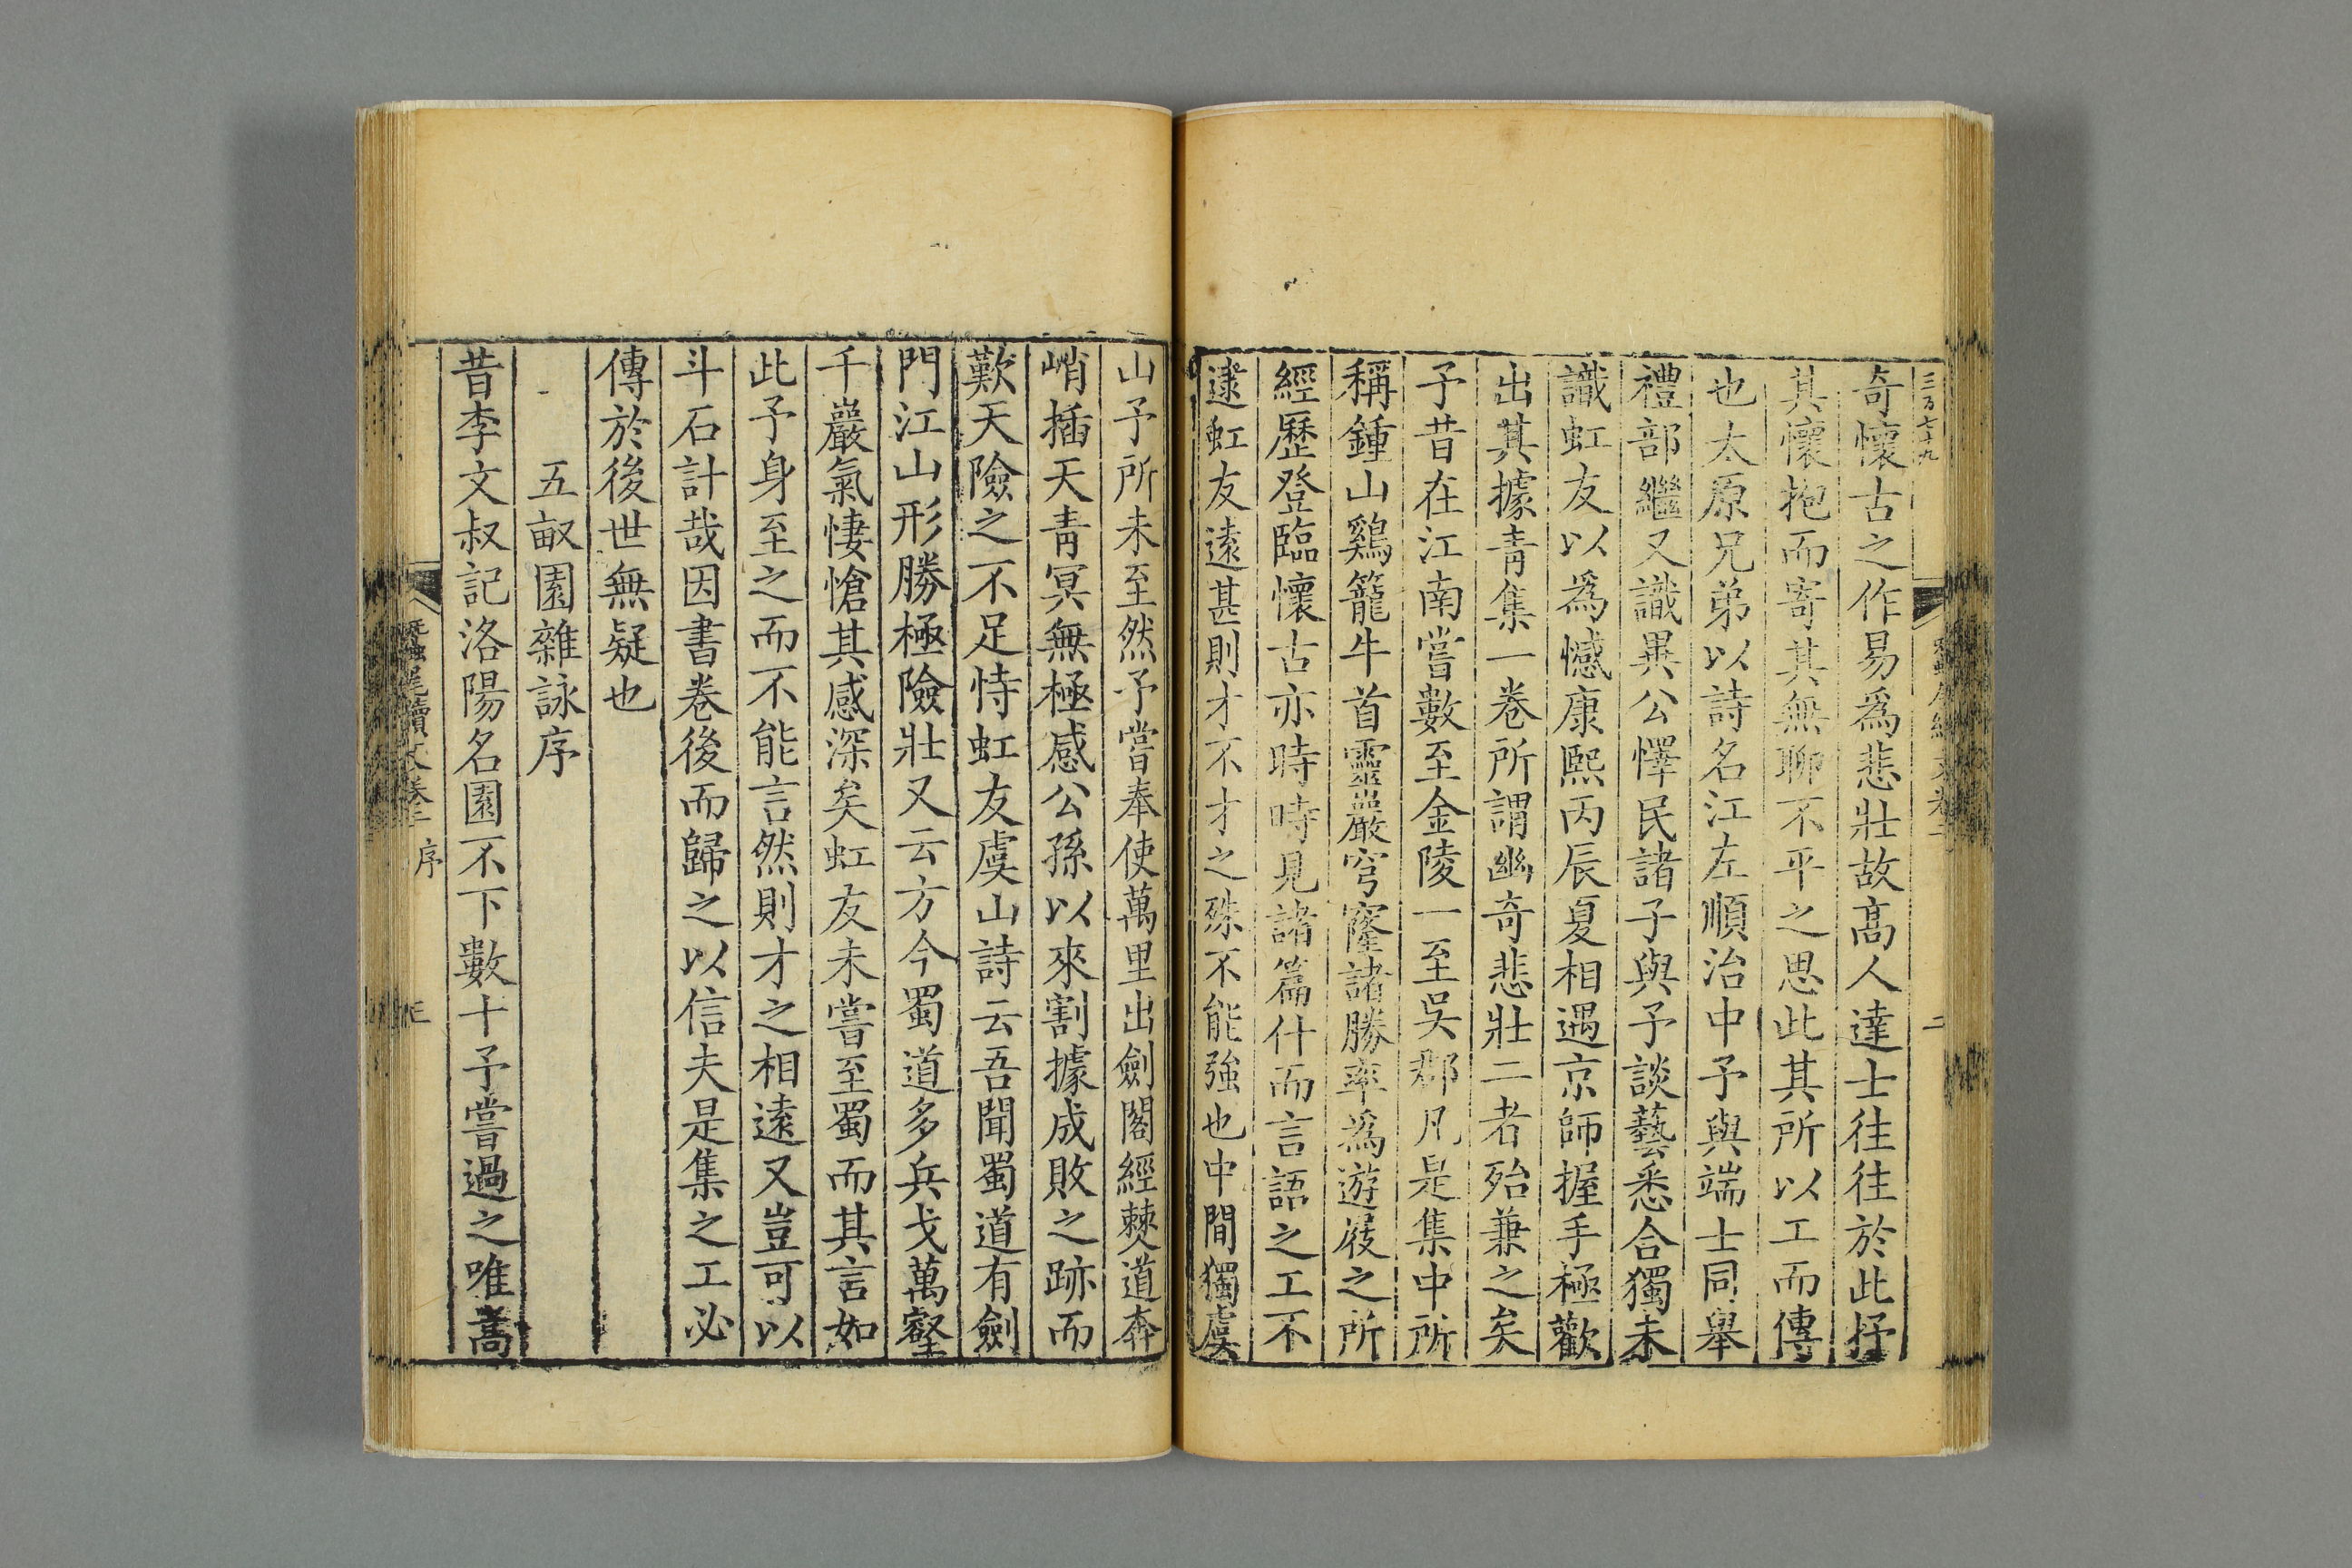 三百七十九
奇懷古之作易爲悲壯故高人達士往往於此抒
其懷抱而寄其無聊不平之思此其所以工而傳
也太原兄弟以詩名江左順治中予與端士同舉
禮部繼又識異公懌民諸子與予談藝悉合獨未
識虹友以爲憾康熙丙辰夏相遇京師握手極歡
出其據青集一卷所謂幽奇悲壯二者殆兼之矣
予昔在江南嘗數至金陵一至吳郡凡是集中所
稱鍾山鷄籠牛首靈巖穹窿諸勝率爲遊屐之所
經歷登臨懷古亦時時見諸篇什而言語之工不
逮虹友遠甚則才不才之殊不能強也中間獨虞
山予所未至然予嘗奉使萬里出劍閣經僰道奔
峭插天青冥無極感公孫以來割據成敗之跡而
歎天險之不足恃虹友虞山詩云吾聞蜀道有劍
門江山形勝極險壯又云方今蜀道多兵戈萬壑
千巖氣悽愴其感深矣虹友未嘗至蜀而其言如
此予身至之而不能言然則才之相遠又豈可以
斗石計哉因書卷後而歸之以信夫是集之工必
傳於後世無疑也
五畝園雜詠序
昔李文叔記洛陽名園不下數十予嘗過之唯嵩
蠶尾續文卷二 序 三